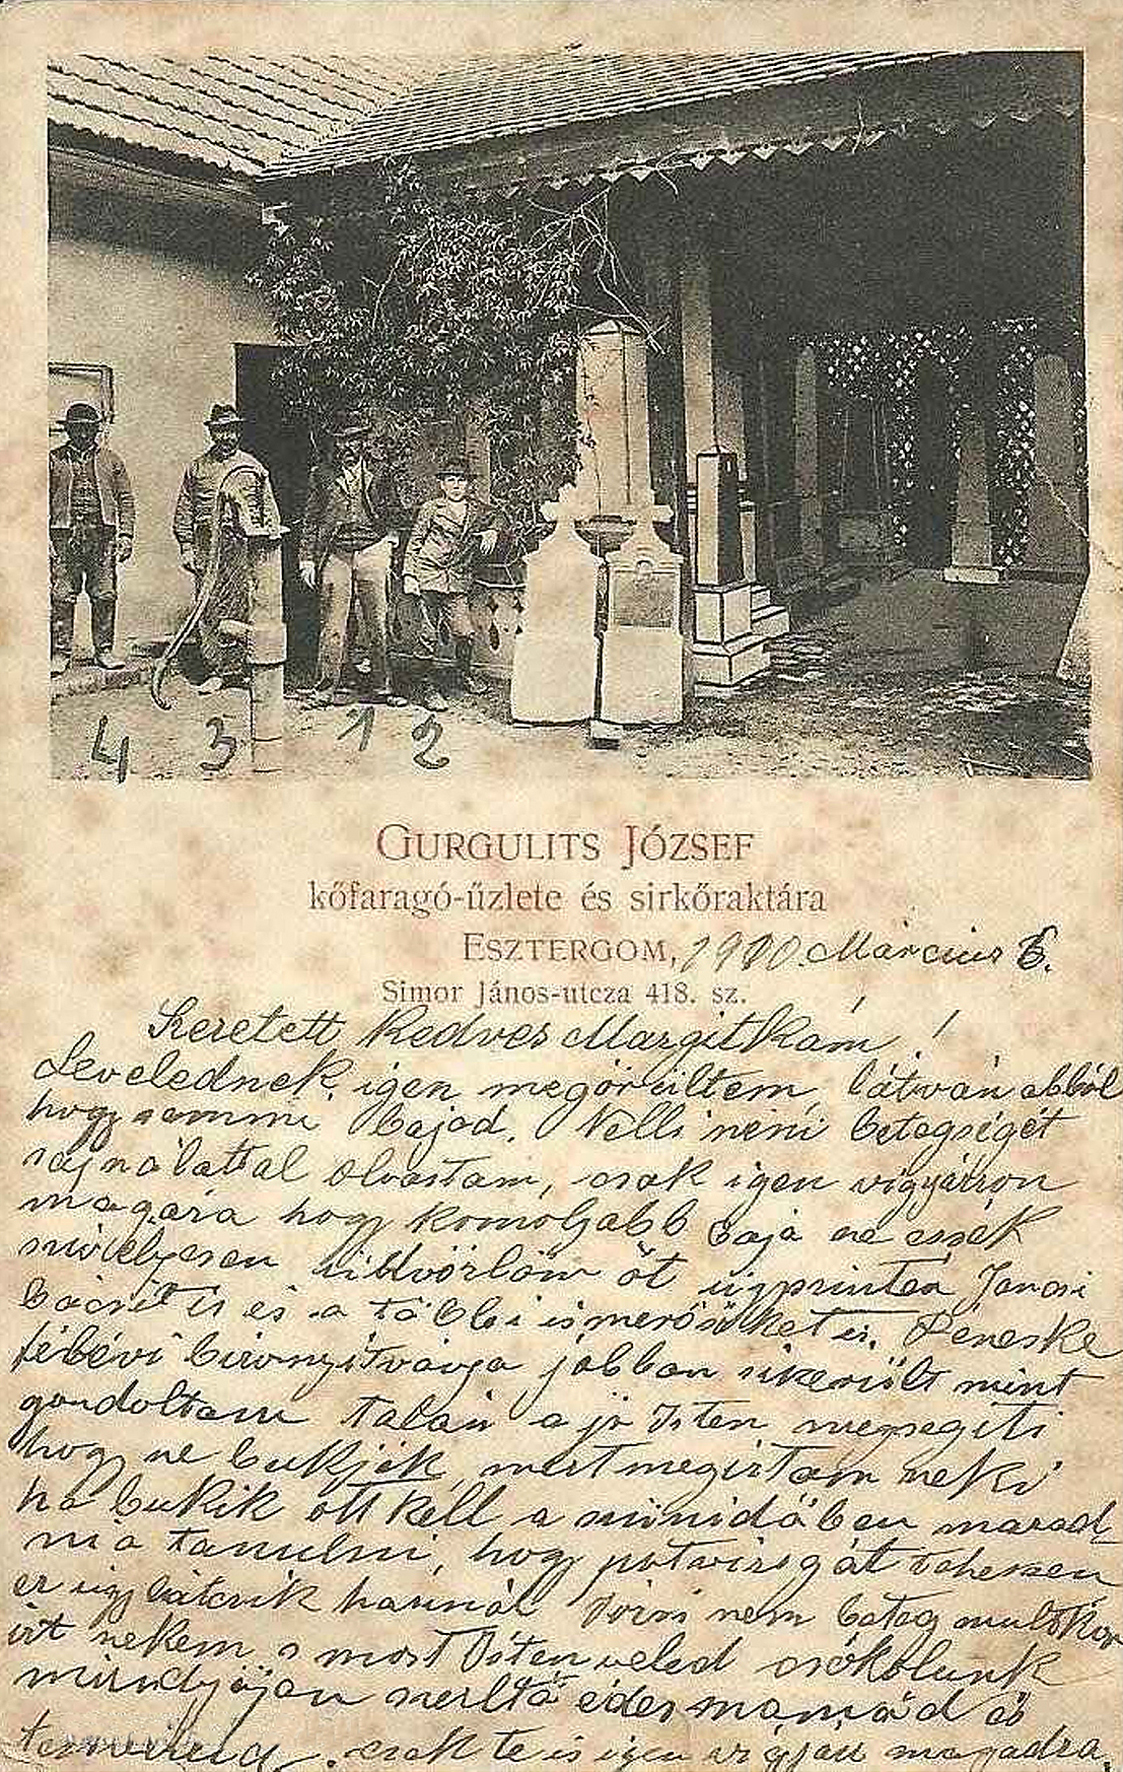 4 3 1 2
GURGULITS JÓZSEF
kőfaragó-űzlete és sirkőraktára
ESZTERGOM, 1910. Március 6.
Simor János-utcza 418. sz.
Szeretett Kedves Margitkám!
Levelednek igen megörültem, látván abból
hogy semmi bajod. Nelli néni betegségét
sajnálattal olvastam, csak igen vigyázzon
magára hogy komolyabb baja ne essék
szivélyesen üdvözlöm őt úgyszintén Jancsi
bácsit is és a többi ismerősöket is.
félévi bizonyitványa jobban sikerült mint
gondoltam talán a jó Isten megsegiti
hogy ne bukjék, mert megirtam neki
ha bukik ott kell a szünidőben marad
nia tanulni, hogy pótvizsgát tehessen
ez úgy látszik használ nem beteg multkor
irt nekem s most Isten veled csókolunk
mindnyájan szerető édes mamád és
testvéreid. csak te is igen vigyázz magadra.